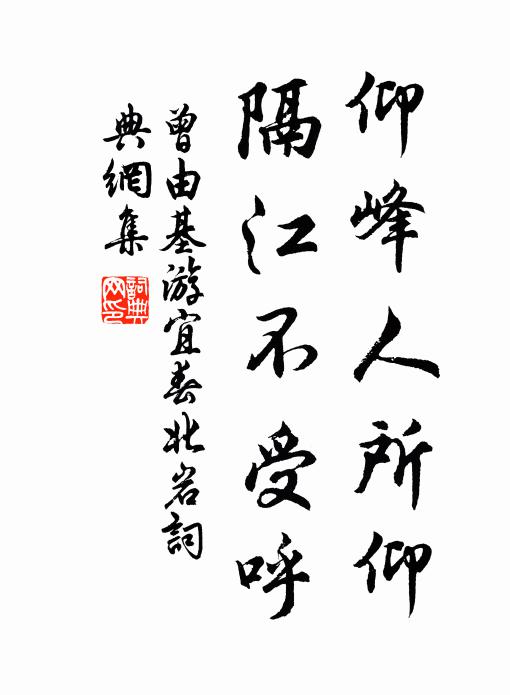 仰峰人所仰
隔江不受呼
曾由基游宜春北岩詞
典網集
詞典
网印